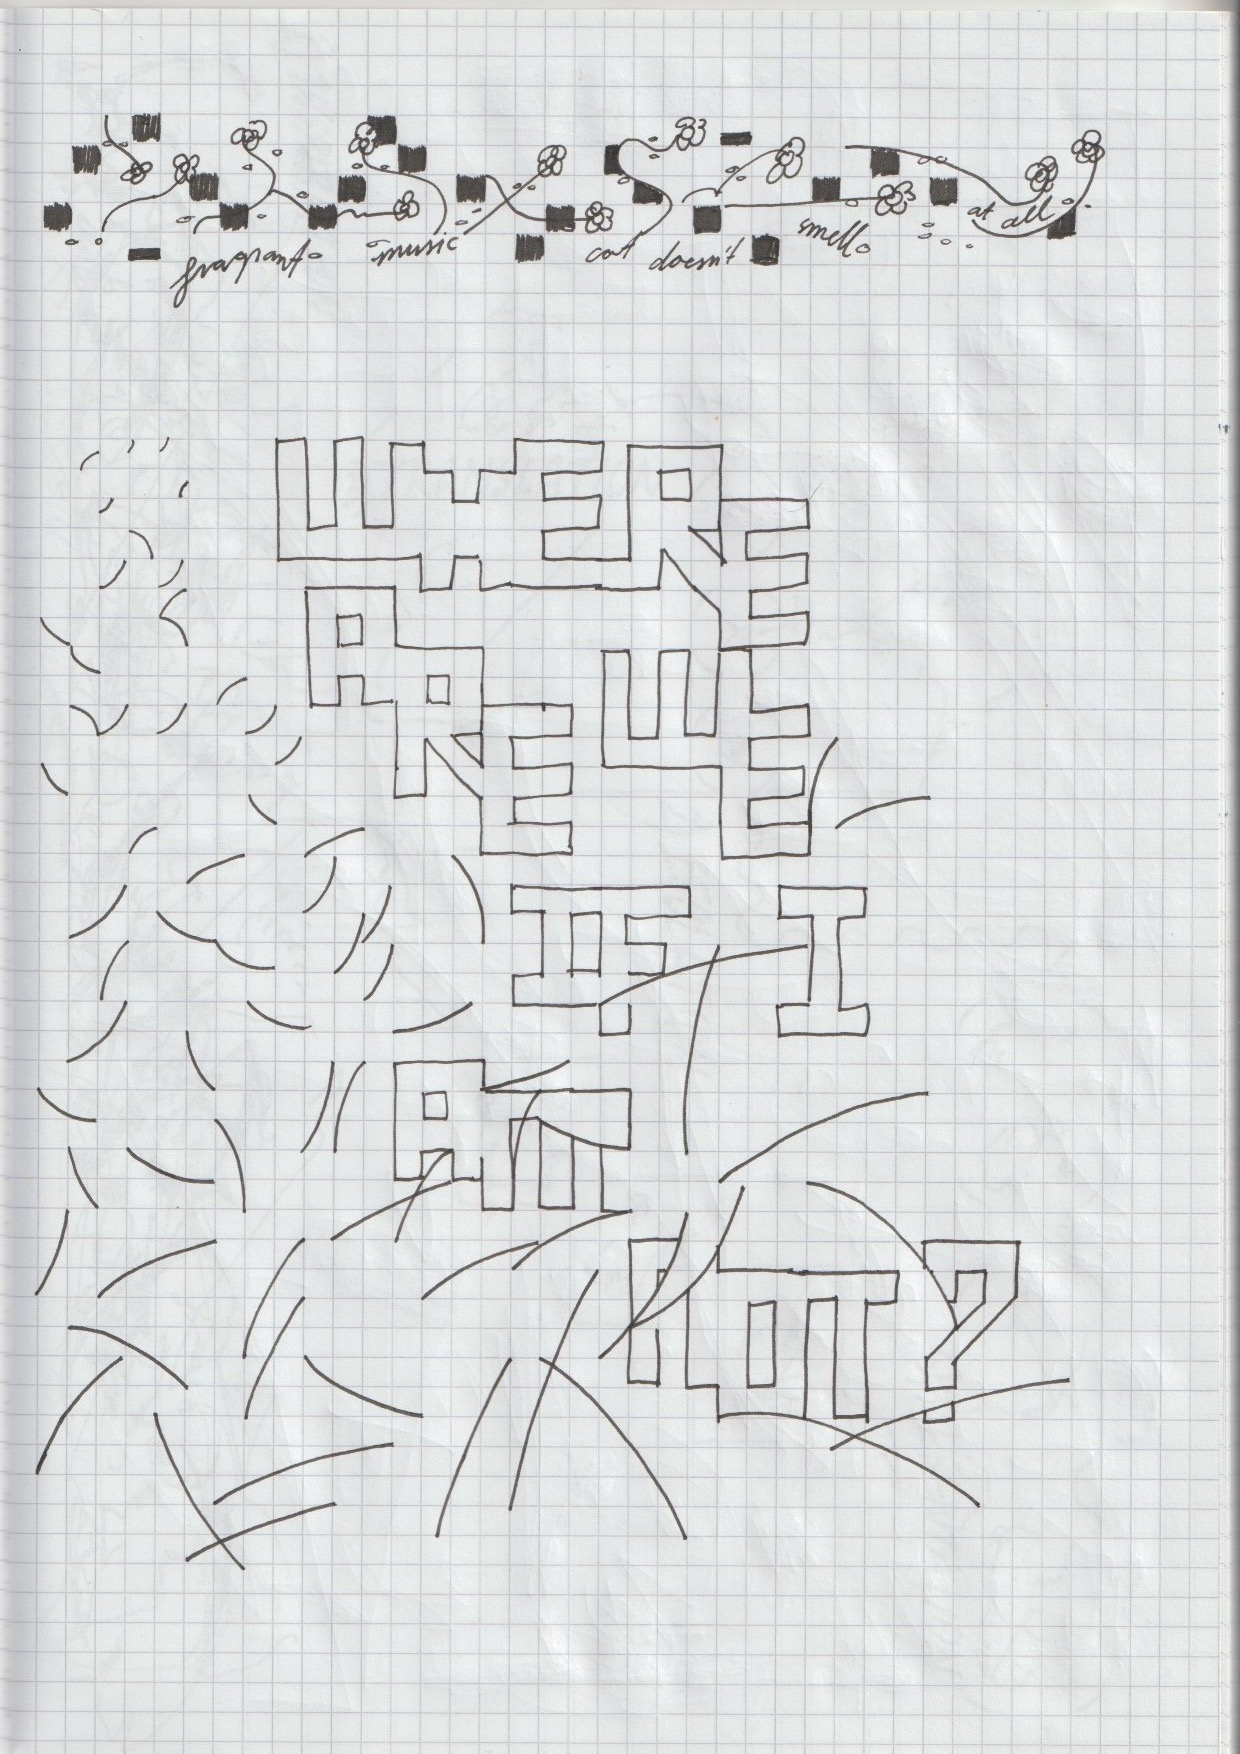 fragrant music cat doesn't smell at all
WHERE
ARE WE
IF I
AM
NOT?